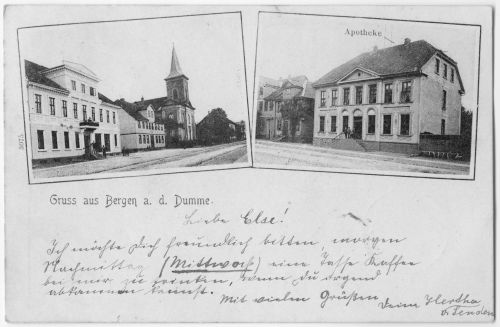 Apotheke
Gruss aus Bergen a. d. Dumme.
Liebe Else!
Ich möchte Dich freundlich bitten, morgen
Nachmittag (Mittwoch) eine Tasse Kaffee
bei mir zu trinken, wenn Du irgend
abkommen kannst.
Mit vielen Grüßen
Deine Hertha